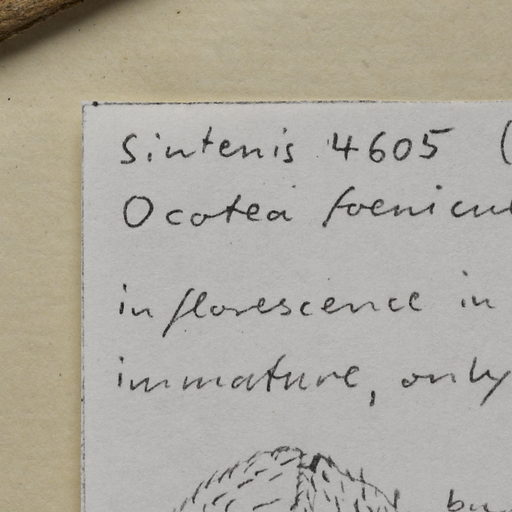 Sintenis 4605 (
Ocotea foenicul
inflorescence in
immature, only
bu